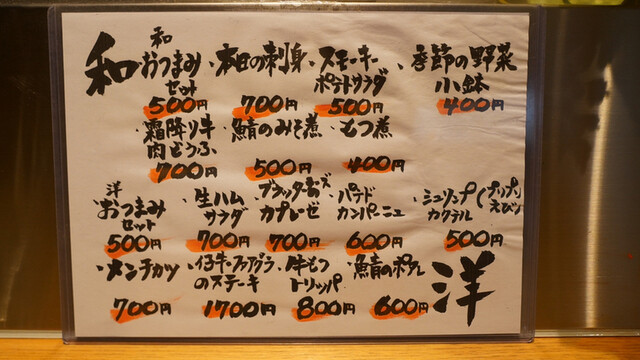 和
和
おつまみ
セット
500円
・本日の刺身
700円
・スモーキー
ポテトサラダ
500円
・季節の野菜
小鉢
400円
・霜降り牛
肉どうふ
700円
・鯖のみそ煮
500円
・もつ煮
400円
洋
・おつまみ
セット
500円
・生ハム
サラダ
700円
カプレーゼ
700円
・パテド
カンパーニュ
600円
・シュリンプ
カクテル
(プリプリ
えび)
500円
・メンチカツ
700円
・仔牛・フォアグラ
のステーキ
1700円
・牛もつ
トリッパ
800円
・鯖のポワレ
600円
洋